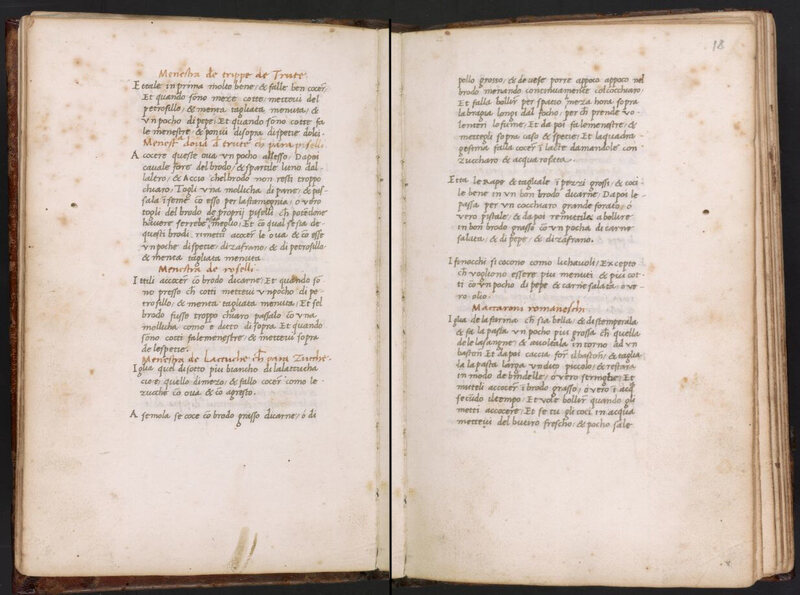 Menestra de trippe de Trute
Ettale in prima molto bene, & falle ben cocer,
Et quando sōno meze cotte, mettevi del
petrosillo, & menta tagliata menuta, &
un pocho di pepe. Et quando sōno cotte fa
le menestre, & ponvi disopra di spetie dolci.
Menest dova d trute ch para piselli
A cocere queste ova un pocho allesso. Dapoi
cavale fore del brodo, & spartile luno dal
laltro, & Accio chel brodo non resti troppo
chiaro. Togli una mollicha di pane, & pas
sala iseme cō esso per la stamognia, o vero
togli del brodo de proprij piselli ch potēdone
havere serrebe meglio. Et cō qual se sia de
questi brodi rimetti accocer le ova & cō esse
un poche di spetie, di zafrano, & di petrosillo
& menta tagliata menuta.
Menestra de roselli
I ttili accocer cō brodo di carne, Et quando sō
no presso ch cotti mettevi un pocho di pe
trosillo, & menta tagliata menuta, Et sel
brodo fusso troppo chiaro passalo cō una
mollicha come e dicto di sopra. Et quando
sōno cotti fale menestre, & mettevi sopra
de le spetie.
Menestra de Lactuche ch para Zucche
I glia quel di sotto piu biancho di la lattucha
cioe quello dimezo, & fallo cocer come le
zucche cō ova & cō agresto.
A semola se coce cō brodo grasso di carne, ò di
18
pollo grosso, & devese porre appoco appoco nel
brodo menando continuamente col cocchiaro,
Et falla bollir per spatio meza hora sopra
la bragia longi dal focho, per ch prende vo
lentieri lo fume, Et da poi fa le menestre, &
mettegli sopra caso & spetie, Et la quadra
gesima falla cocer i lacte damandole con
zuccharo & acqua rosata.
Etta le Rape & tagliale i pezzi grossi, & coci
le bene in un bon brodo di carne. Dapoi le
passa per un cocchiaro grande forato, ò
vero pistale, & da poi remittile a bollire
in bon brodo grasso cō un pocha di carne
salata, & di pepe, & di zafrano.
I finocchi si cocono como li chavoli, Excepto
ch vogliono essere piu menuti & piu cot
ti cō un pocho di pepe & carne salata, o ve
ro olio.
Maccaroni romaneschi
I glia de la farina ch sia bella, & distemperala
& fa la pasta un pocho piu grossa ch quella
de le lasangne, & avvolēla intorno ad un
bastōn Et da poi caccia for il bastōn, & taglia
la la pasta larga un dito piccolo, & restara
in modo de bindelle, ò vero stringhe, Et
mitteli accocer i brodo grasso, ò vero i acq
secūdo il tempo. Et vole bollir quando gli
metti accocere. Et se tu gli coci in acqua
mettevi del butiro frescho, & pocho sale